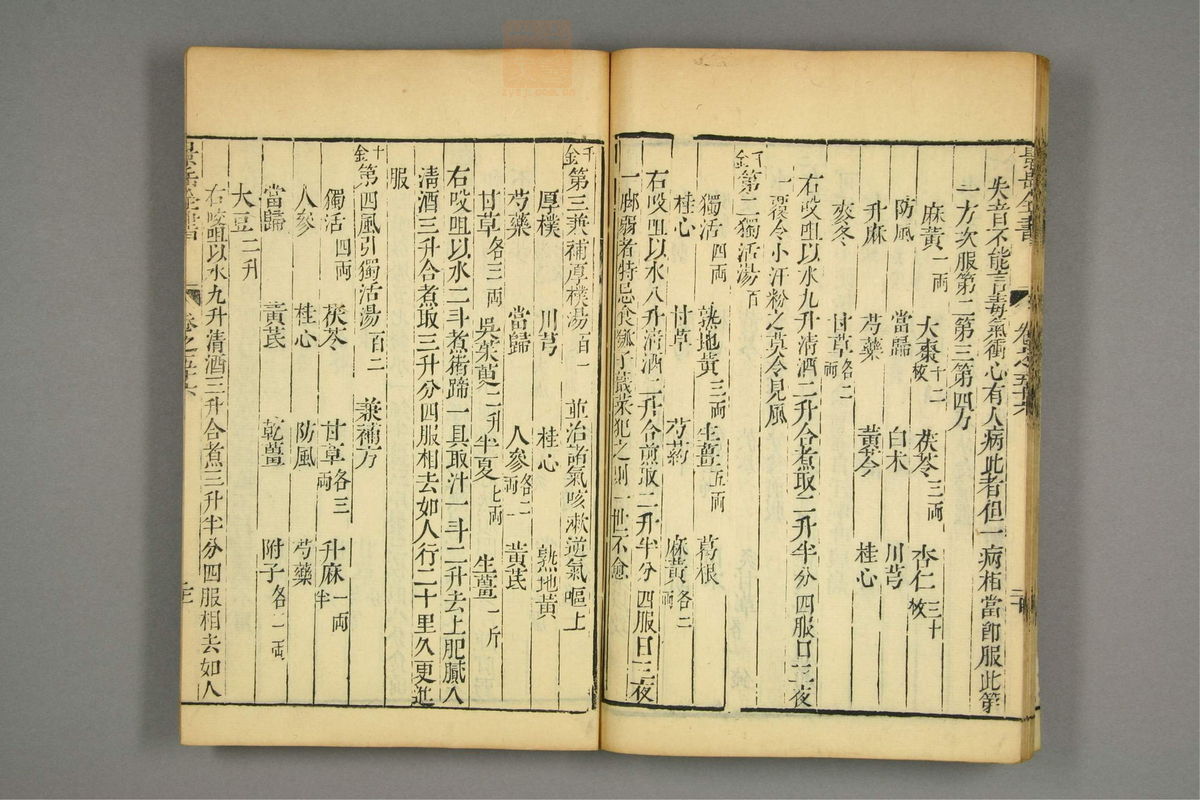 景岳全書
卷之五十六
失音不能言毒氣衝心有人病此者但一病相當卽服此第
一方次服第二第三第四方
麻黃一兩 大棗十二枚 茯苓三兩 杏仁三十枚
防風 當歸 白朮 川芎
升麻 芍藥 黃芩 桂心
麥冬 甘草各二兩
右㕮咀以水九升淸酒二升合煮取二升半分四服日三夜
一覆令小汗粉之莫令見風
千金第二獨活湯百
獨活四兩 熟地黃三兩 生薑五兩 葛根
桂心 甘草 芍药 麻黃各二兩
右㕮咀以水八升淸酒二升合煎取二升半分四服日三夜
一脚弱者特忌食瓠子蕺菜犯之則一世不愈
千金第三兼補厚樸湯百一 並治諸氣咳漱逆氣嘔上
厚樸 川芎 桂心 熟地黃
芍藥 當歸 人參各二兩 黃芪
甘草各三兩 吳茱萸二升 半夏七兩 生薑一斤
右㕮咀以水二斗煮猪蹄一具取汁一斗二升去上肥膩入
淸酒三升合煮取三升分四服相去如人行二十里久更進
服
千金第四風引獨活湯百二 兼補方
獨活四兩 茯苓 甘草各三兩 升麻一兩半
人參 桂心 防風 芍藥
當歸 黃芪 乾薑 附子各二兩
大豆二升
右㕮咀以水九升清酒三升合煮三升半分四服相去如人
景岳全書
卷之五十六